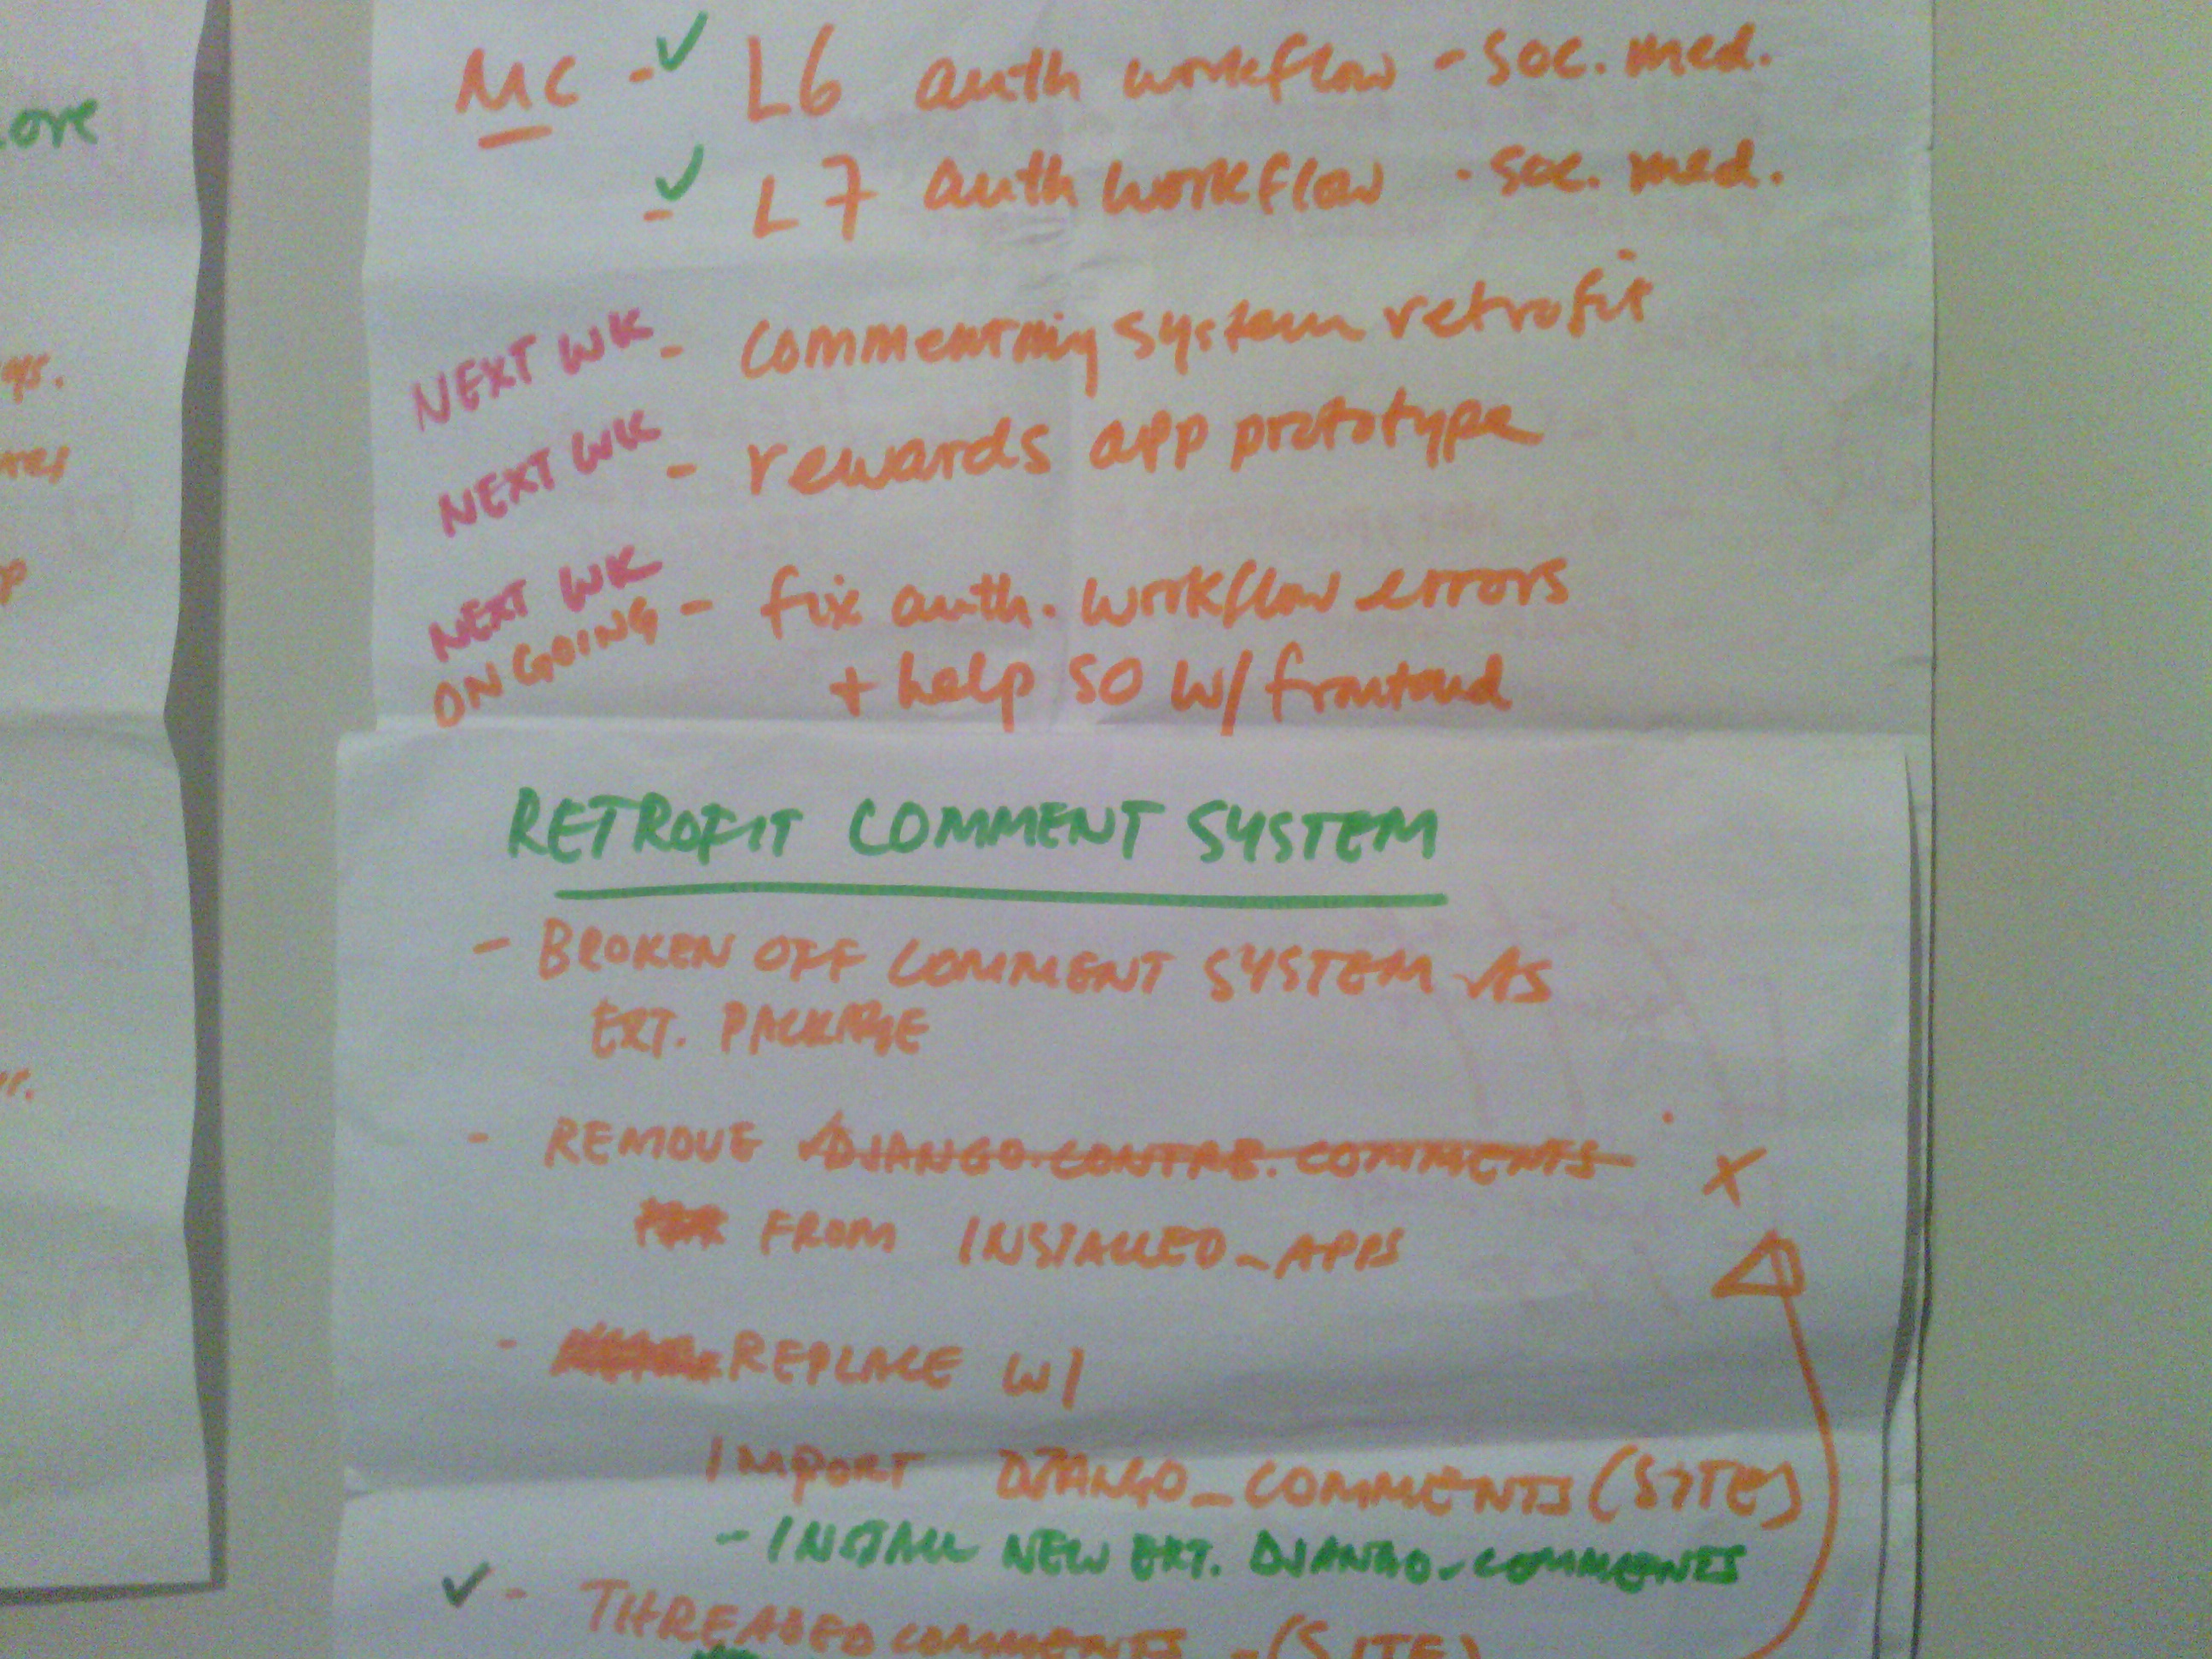 ore
MC - ✓ L6 auth workflow - soc. med.
- ✓ L7 auth workflow - soc. med.
NEXT WK - commenting system retrofit
NEXT WK - rewards app prototype
NEXT WK
ONGOING - fix auth. workflow errors
+ help SO w/ frontend
RETROFIT COMMENT SYSTEM
- BROKEN OFF COMMENT SYSTEM AS
EXT. PACKAGE
- REMOVE DJANGO.CONTRIB.COMMENTS X
FROM INSTALLED_APPS
- REPLACE W/
IMPORT DJANGO_COMMENTS (SITE)
- INSTALL NEW EXT. DJANGO_COMMENTS
✓ - THREADEDCOMMENTS - (SITE)